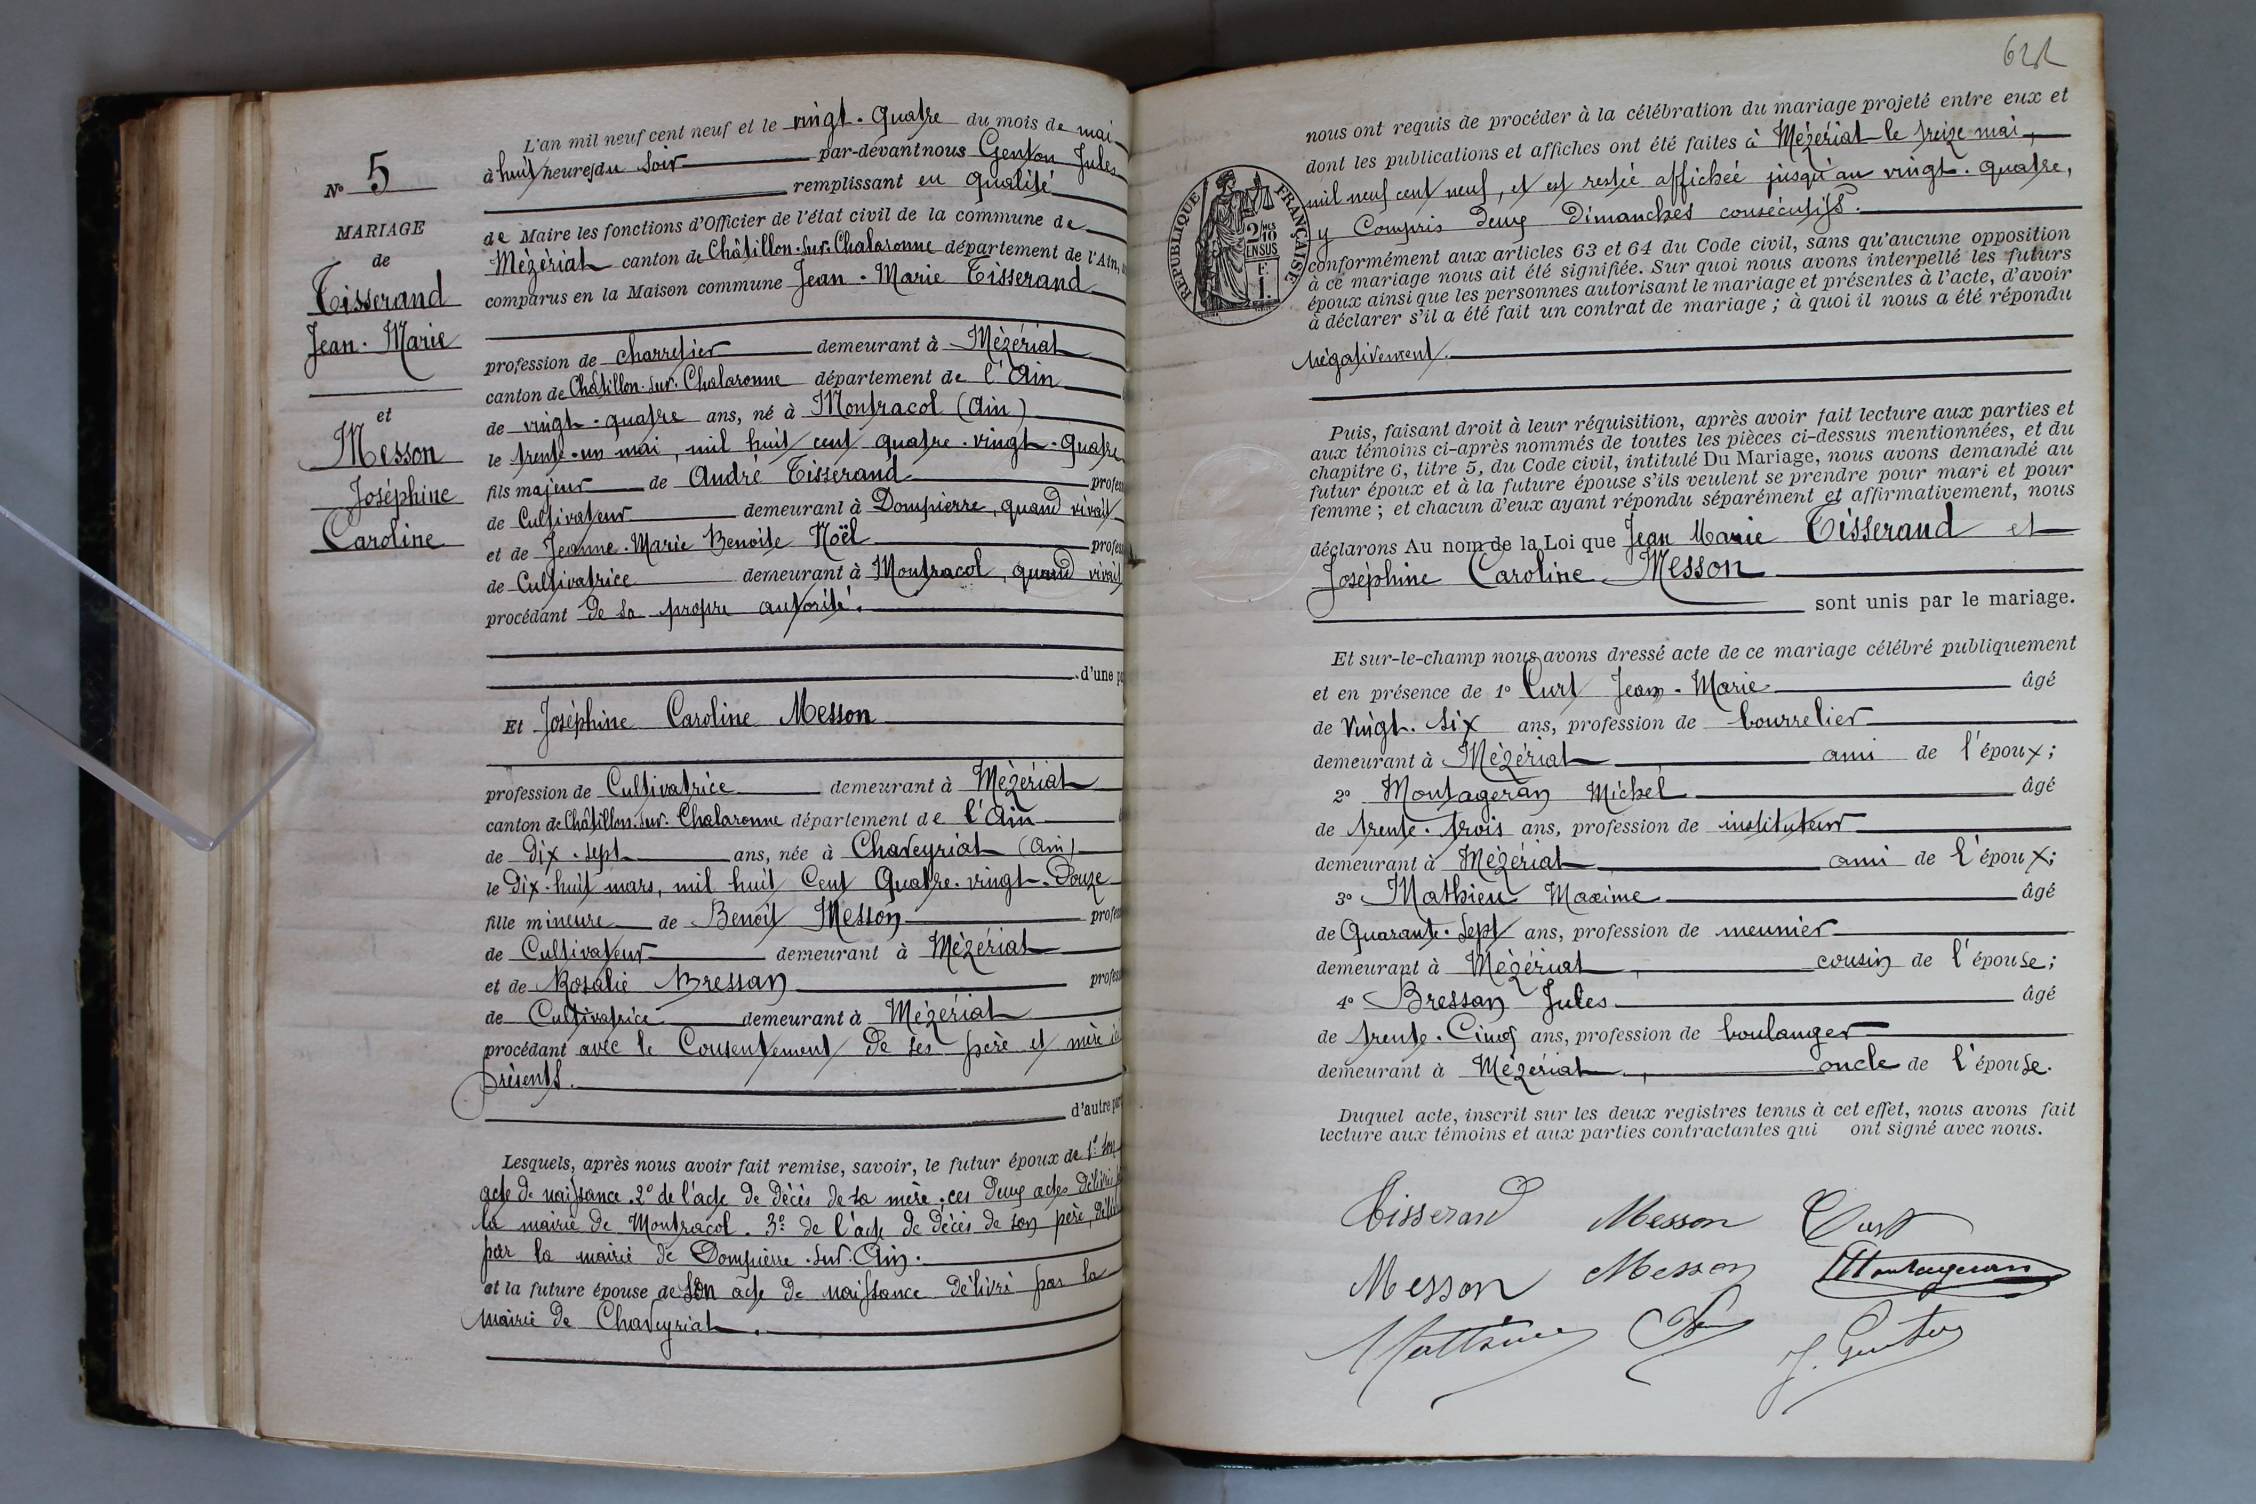 N° 5
MARIAGE
de
Tisserand
Jean-Marie
et
Messon
Joséphine
Caroline
L'an mil neuf cent neuf et le vingt-quatre du mois de mai
à huit heures du soir par-devant nous Genton Jules
remplissant en qualité
de Maire les fonctions d'Officier de l'état civil de la commune de
Mézériat canton de Châtillon-sur-Chalaronne département de l'Ain,
comparus en la Maison commune Jean-Marie Tisserand
profession de charretier demeurant à Mézériat
canton de Châtillon-sur-Chalaronne département de l'Ain
de vingt-quatre ans, né à Montracol (Ain)
le trente-un mai, mil huit cent quatre-vingt-quatre
fils majeur de André Tisserand profess
de Cultivateur demeurant à Dompierre, quand vivait
et de Jeanne-Marie Benoite Noël profess
de Cultivatrice demeurant à Montracol, quand vivait
procédant de sa propre autorité.
d'une pa
Et Joséphine Caroline Messon
profession de Cultivatrice demeurant à Mézériat
canton de Châtillon-sur-Chalaronne département de l'Ain
de dix-sept ans, née à Chaveyriat (Ain)
le dix-huit mars, mil huit cent quatre-vingt-douze
fille mineure de Benoît Messon profess
de Cultivateur demeurant à Mézériat
et de Rosalie Bressan profess
de Cultivatrice demeurant à Mézériat
procédant avec le Consentement de ses père et mère ici
présents.
d'autre part
Lesquels, après nous avoir fait remise, savoir, le futur époux de 1° son
acte de naissance. 2° de l'acte de décès de sa mère. ces deux actes délivrés
la mairie de Montracol. 3° de l'acte de décès de son père, délivré
par la mairie de Dompierre-sur-Ain.
et la future épouse de son acte de naissance délivré par la
mairie de Chaveyriat.
622
nous ont requis de procéder à la célébration du mariage projeté entre eux et
dont les publications et affiches ont été faites à Mézériat le treize mai,
mil neuf cent neuf, et est restée affichée jusqu'au vingt-quatre,
y Compris deux Dimanches consécutifs.
RÉPUBLIQUE FRANÇAISE
2/10 MES
EN SUS
F.
1.
conformément aux articles 63 et 64 du Code civil, sans qu'aucune opposition
à ce mariage nous ait été signifiée. Sur quoi nous avons interpellé les futurs
époux ainsi que les personnes autorisant le mariage et présentes à l'acte, d'avoir
à déclarer s'il a été fait un contrat de mariage ; à quoi il nous a été répondu
négativement.
Puis, faisant droit à leur réquisition, après avoir fait lecture aux parties et
aux témoins ci-après nommés de toutes les pièces ci-dessus mentionnées, et du
chapitre 6, titre 5, du Code civil, intitulé Du Mariage, nous avons demandé au
futur époux et à la future épouse s'ils veulent se prendre pour mari et pour
femme ; et chacun d'eux ayant répondu séparément et affirmativement, nous
déclarons Au nom de la Loi que Jean Marie Tisserand et
Joséphine Caroline Messon
sont unis par le mariage.
Et sur-le-champ nous avons dressé acte de ce mariage célébré publiquement
et en présence de 1° Curt Jean-Marie âgé
de vingt-six ans, profession de bourrelier
demeurant à Mézériat ami de l'époux;
2° Montageran Michel âgé
de trente-trois ans, profession de instituteur
demeurant à Mézériat ami de l'époux;
3° Mathieu Maxime âgé
de Quarante-sept ans, profession de meunier
demeurant à Mézériat, cousin de l'épouse;
4° Bressan Jules âgé
de trente-Cinq ans, profession de boulanger
demeurant à Mézériat, oncle de l'épouse.
Duquel acte, inscrit sur les deux registres tenus à cet effet, nous avons fait
lecture aux témoins et aux parties contractantes qui ont signé avec nous.
Tisserand Messon Curt
Messon Messon Montageran
Mathieu J. Genton